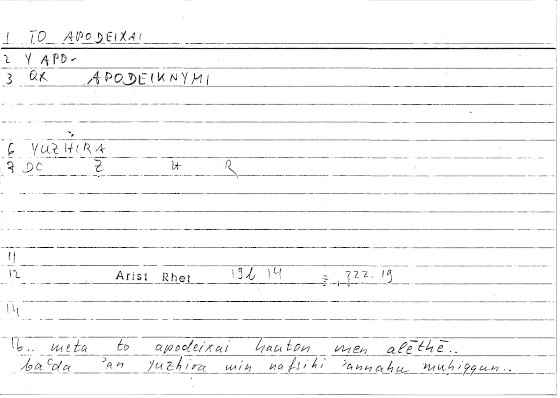 1 TO APODEIXAI
2 Y APO-
3 QX APODEIKNYMI
6 YUZHIRA
7 DC Z H R
11
12 Arist Rhet 19b 14 = 222.19
14
16.. meta to apodeixai hauton men alēthē..
baʿda ʾan yuzhira min nafsihi ʾannahu muḥiqqun..